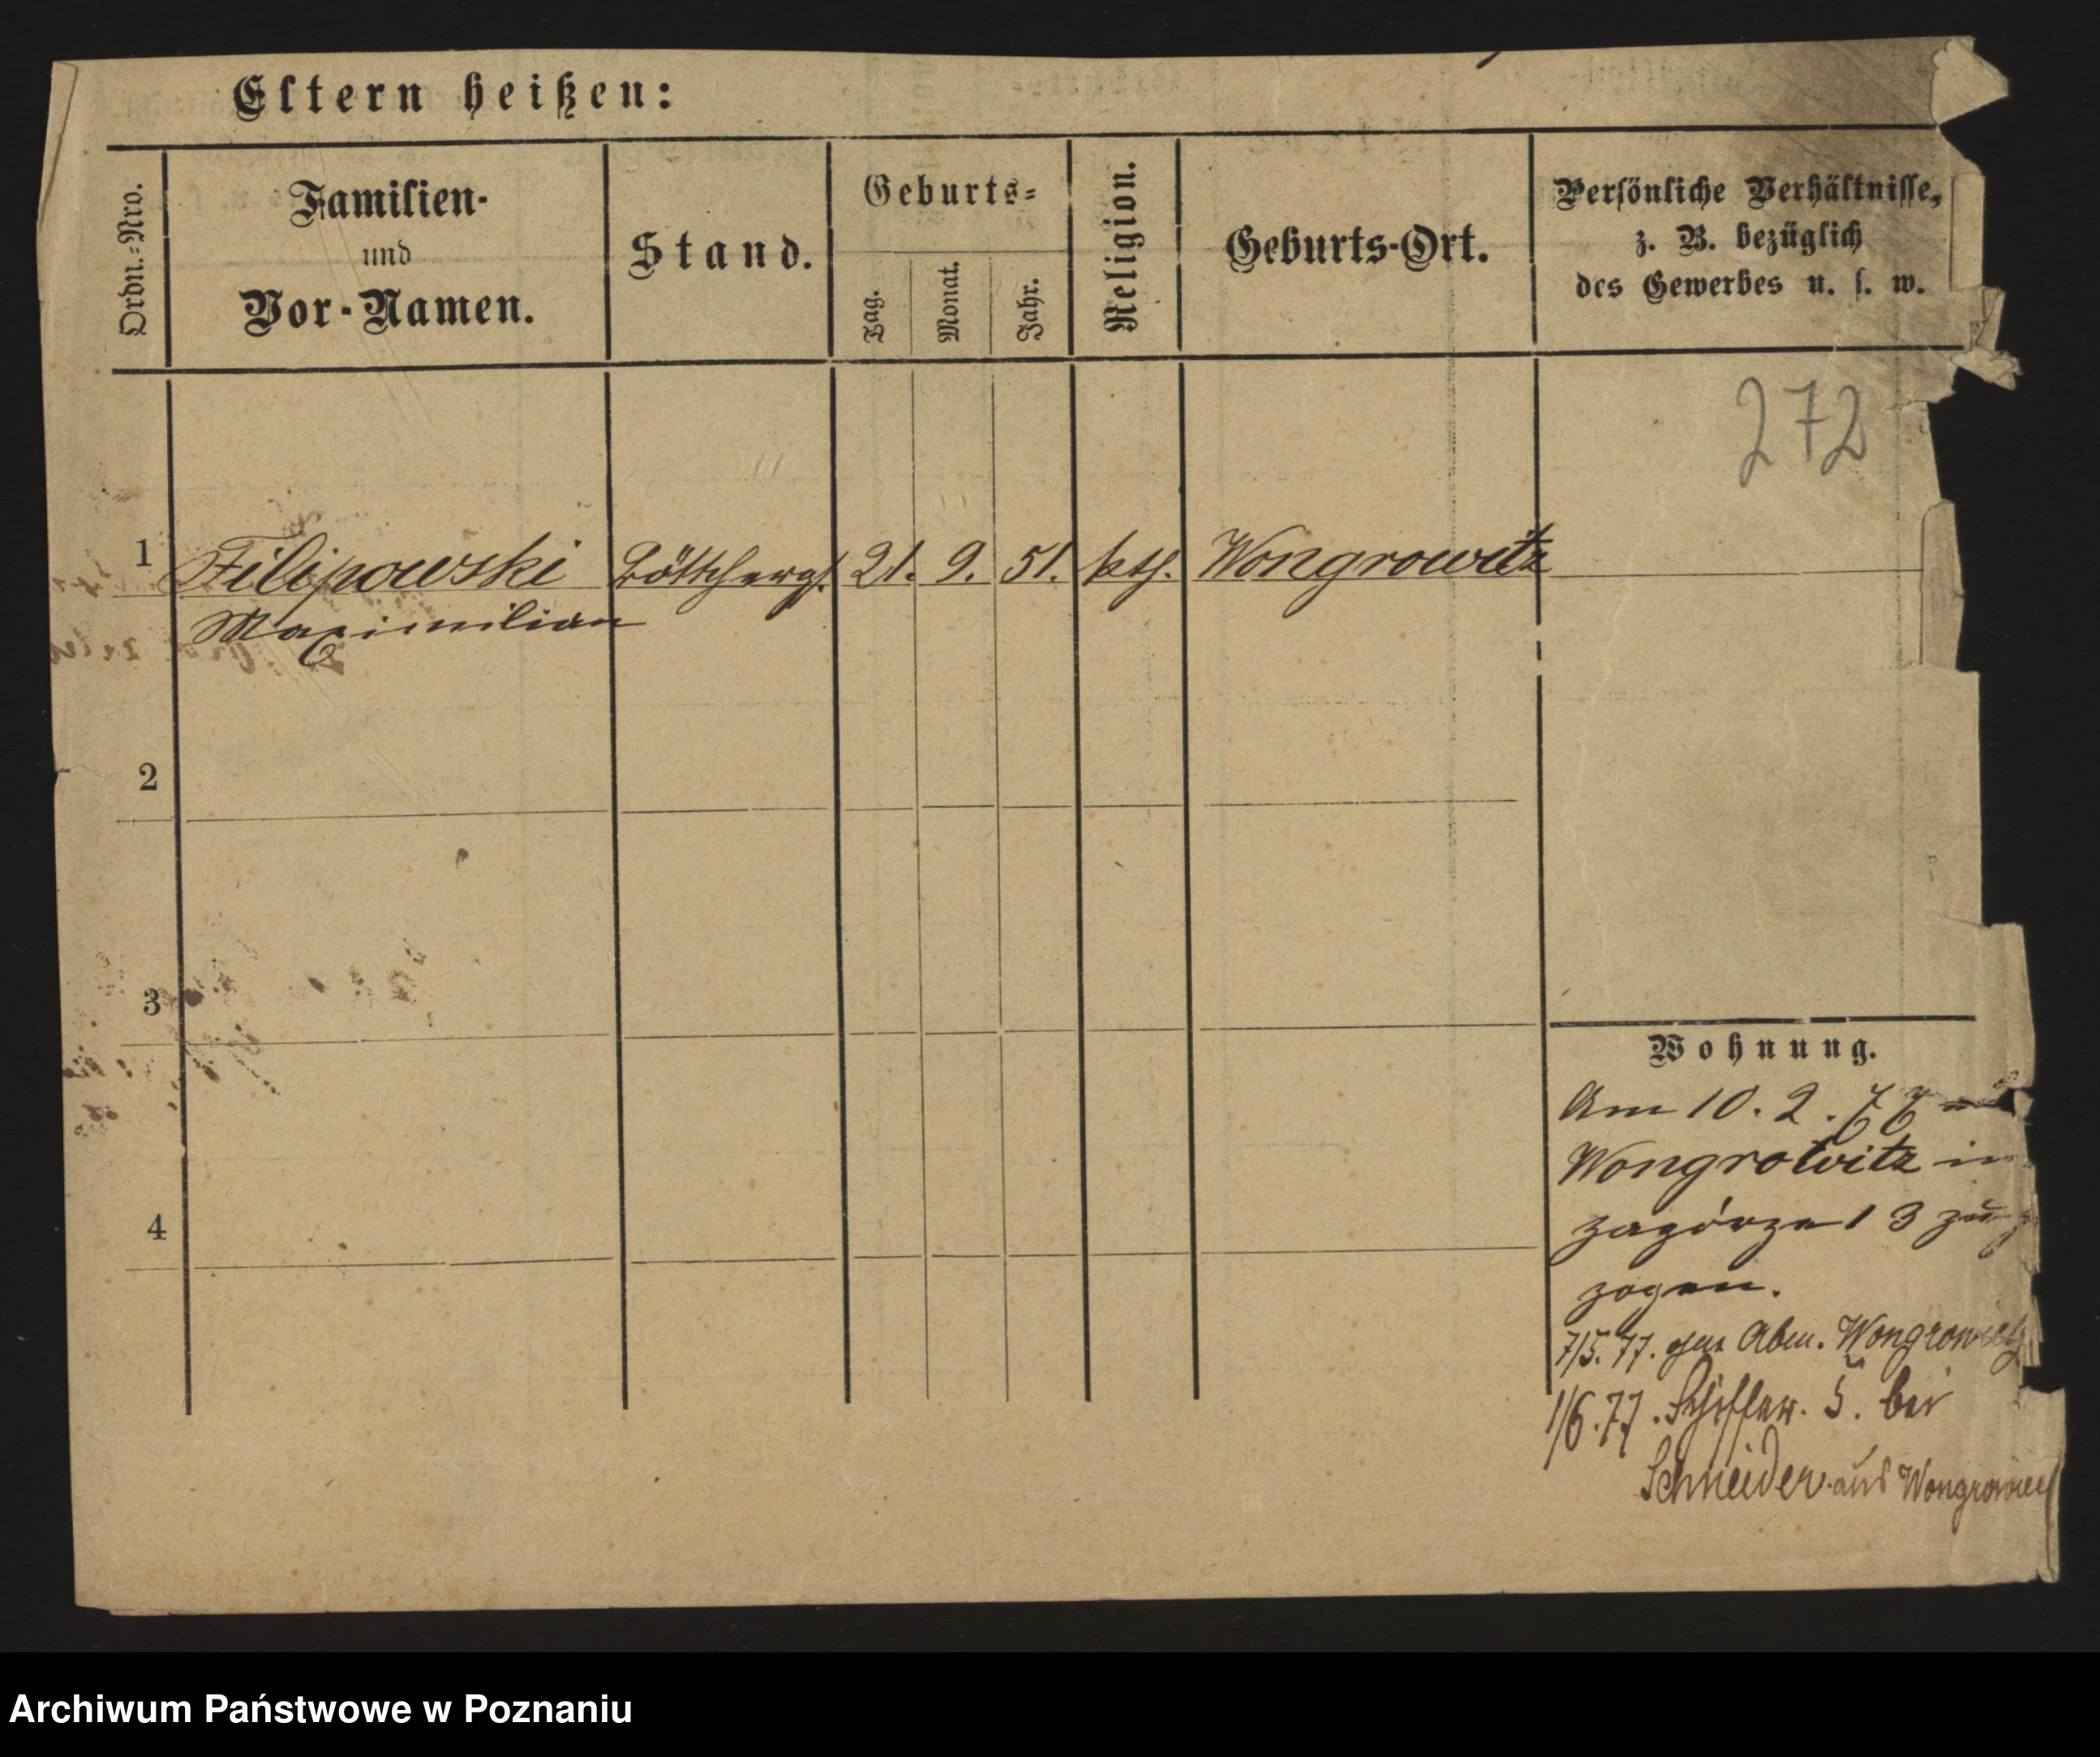 Eltern heißen:
Ordn.-Nro.
Familien-
und
Vor-Namen.
Stand.
Geburts-
Tag.
Monat.
Jahr.
Religion.
Geburts-Ort.
Persönliche Verhältnisse,
z. B. bezüglich
des Gewerbes u. s. w.
272
1 Filipowski Böttcherges. 21. 9. 51. kth. Wongrowitz
Maximilian
2
3
4
Wohnung.
Am 10. 2. 77
Wongrowitz in
Zagórze 13 zu
zogen.
7/5. 77. Abm. Wongrowitz
1/6. 77. Schifferr. 5. bei
Schneider aus Wongrowitz
Archiwum Państwowe w Poznaniu